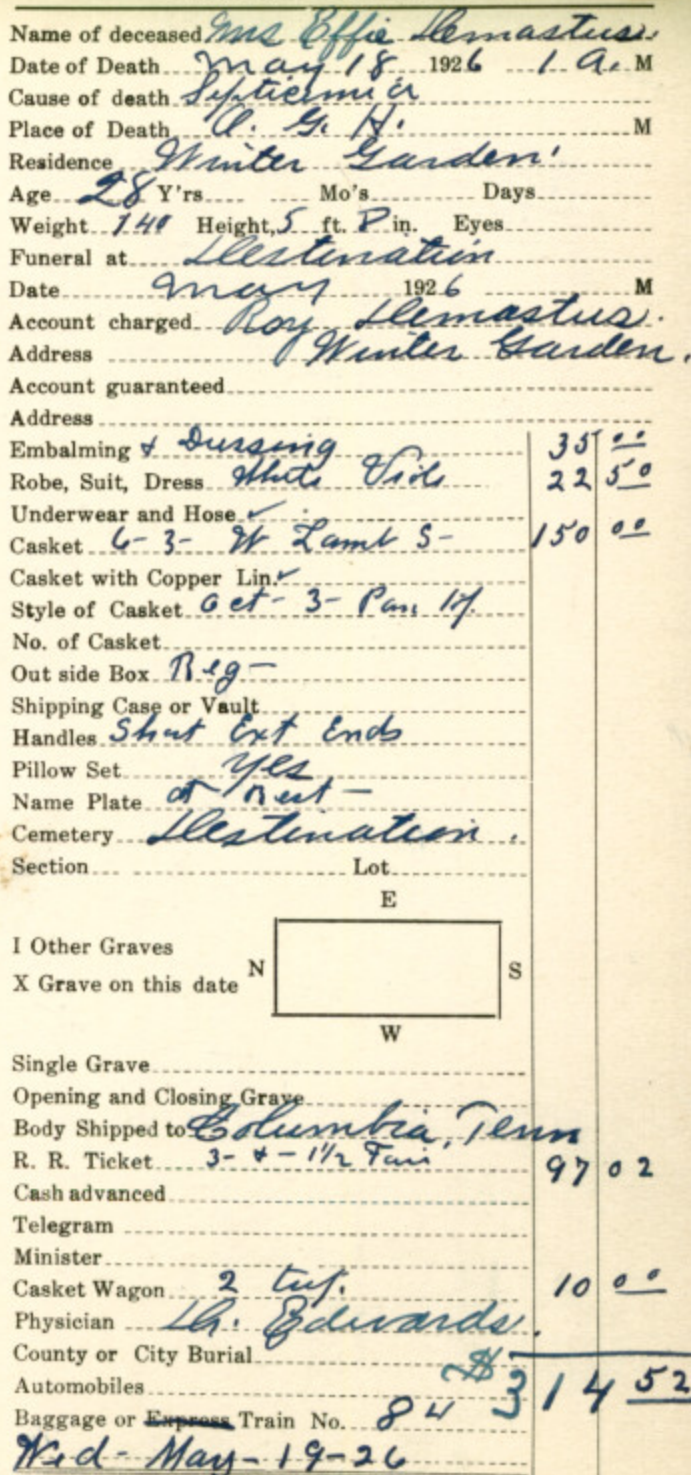 Name of deceased Mrs Effie Demastus.
Date of Death May 18 1926 1 A. M
Cause of death Septicemia
Place of Death O. G. H. M
Residence Winter Garden.
Age 28 Y'rs Mo's Days
Weight 140 Height, 5 ft. 8 in. Eyes
Funeral at Destination
Date May 1926 M
Account charged Roy Demastus.
Address Winter Garden.
Account guaranteed
Address
Embalming & Dressing 35 00
Robe, Suit, Dress White Viole 22 50
Underwear and Hose ✓
Casket 6-3- W Lamb S- 150 00
Casket with Copper Lin. ✓
Style of Casket Oct- 3- Pan
No. of Casket
Out side Box Reg-
Shipping Case or Vault
Handles Short Ext Ends
Pillow Set yes
Name Plate At Rest-
Cemetery Destination.
Section Lot
E
I Other Graves
N S
X Grave on this date
W
Single Grave
Opening and Closing Grave
Body Shipped to Columbia, Tenn
R. R. Ticket 3- & - 1 1/2 Fair 97 02
Cash advanced
Telegram
Minister
Casket Wagon 2 10 00
Physician Dr. Edwards.
County or City Burial
$314 52
Automobiles
Baggage or Express Train No. 84
Wed- May-19-26